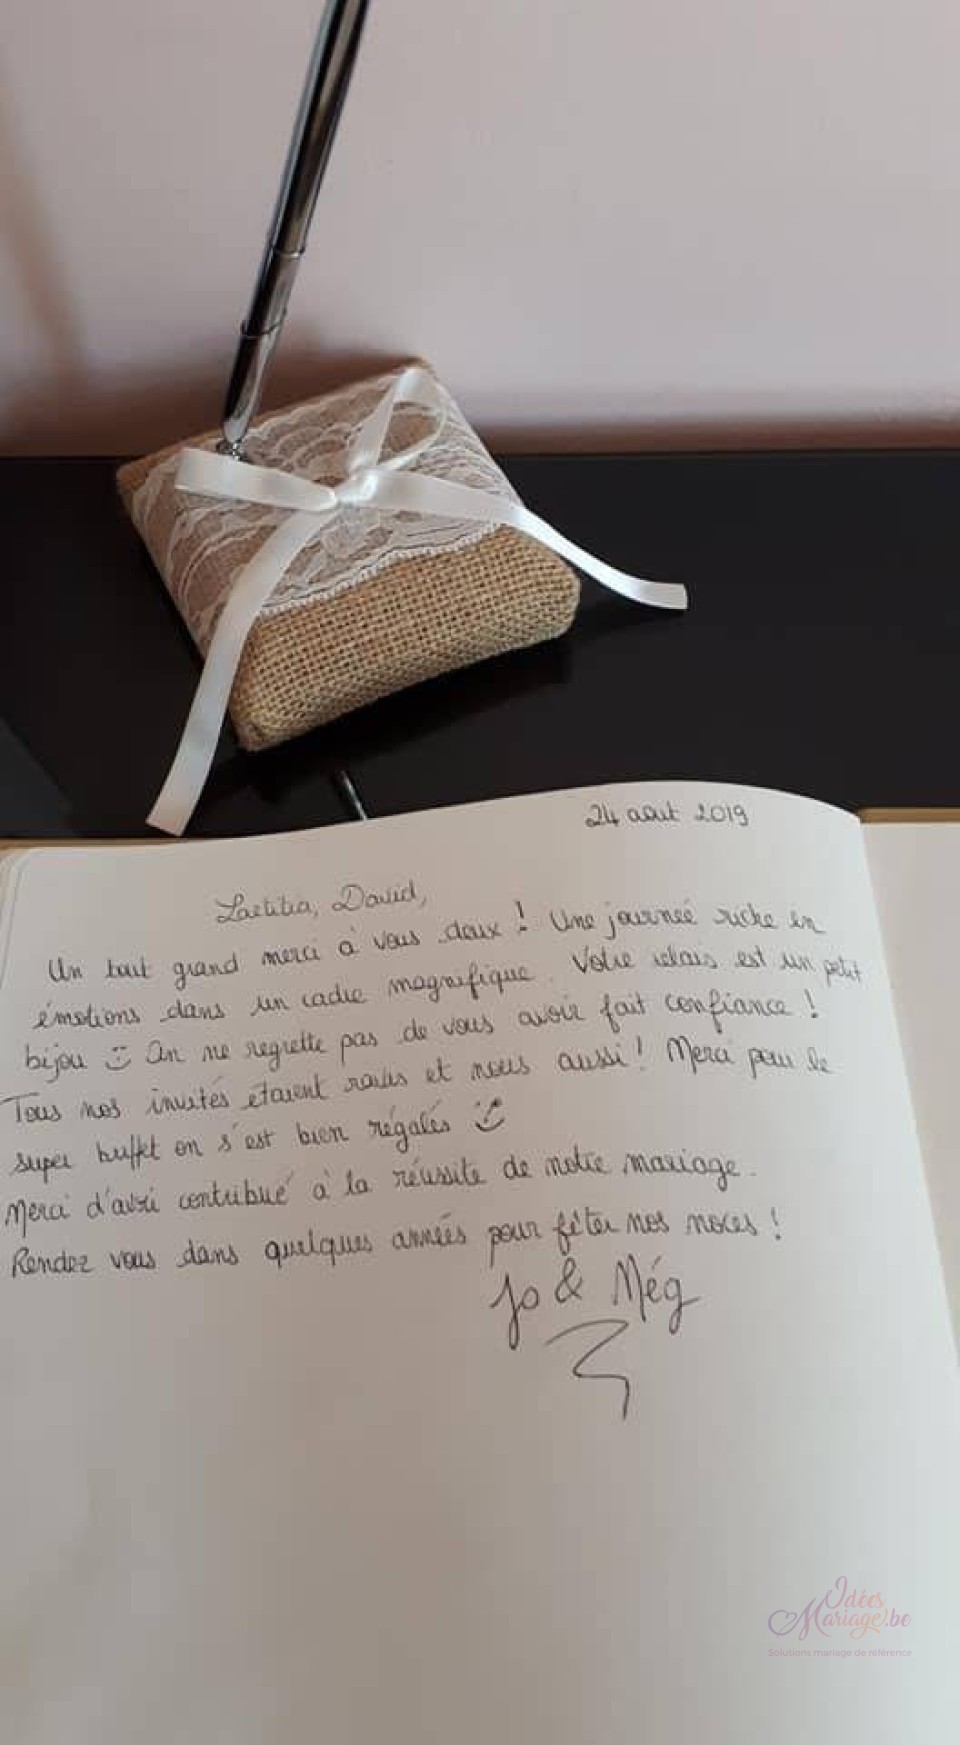 24 aout 2019
Laetitia, David,
Un tout grand merci à vous deux ! Une journeé riche en
émotions dans un cadre magnifique. Votre relais est un petit
bijou On ne regrette pas de vous avoir fait confiance !
Tous nos invités étaient ravis et nous aussi ! Merci pour le
super buffet on s'est bien régalés
Merci d'avoi contribué à la réussite de notre mariage.
Rendez vous dans quelques années pour fêter nos noces !
Jo & Még
Idées
Mariage.be
Solutions mariage de référence